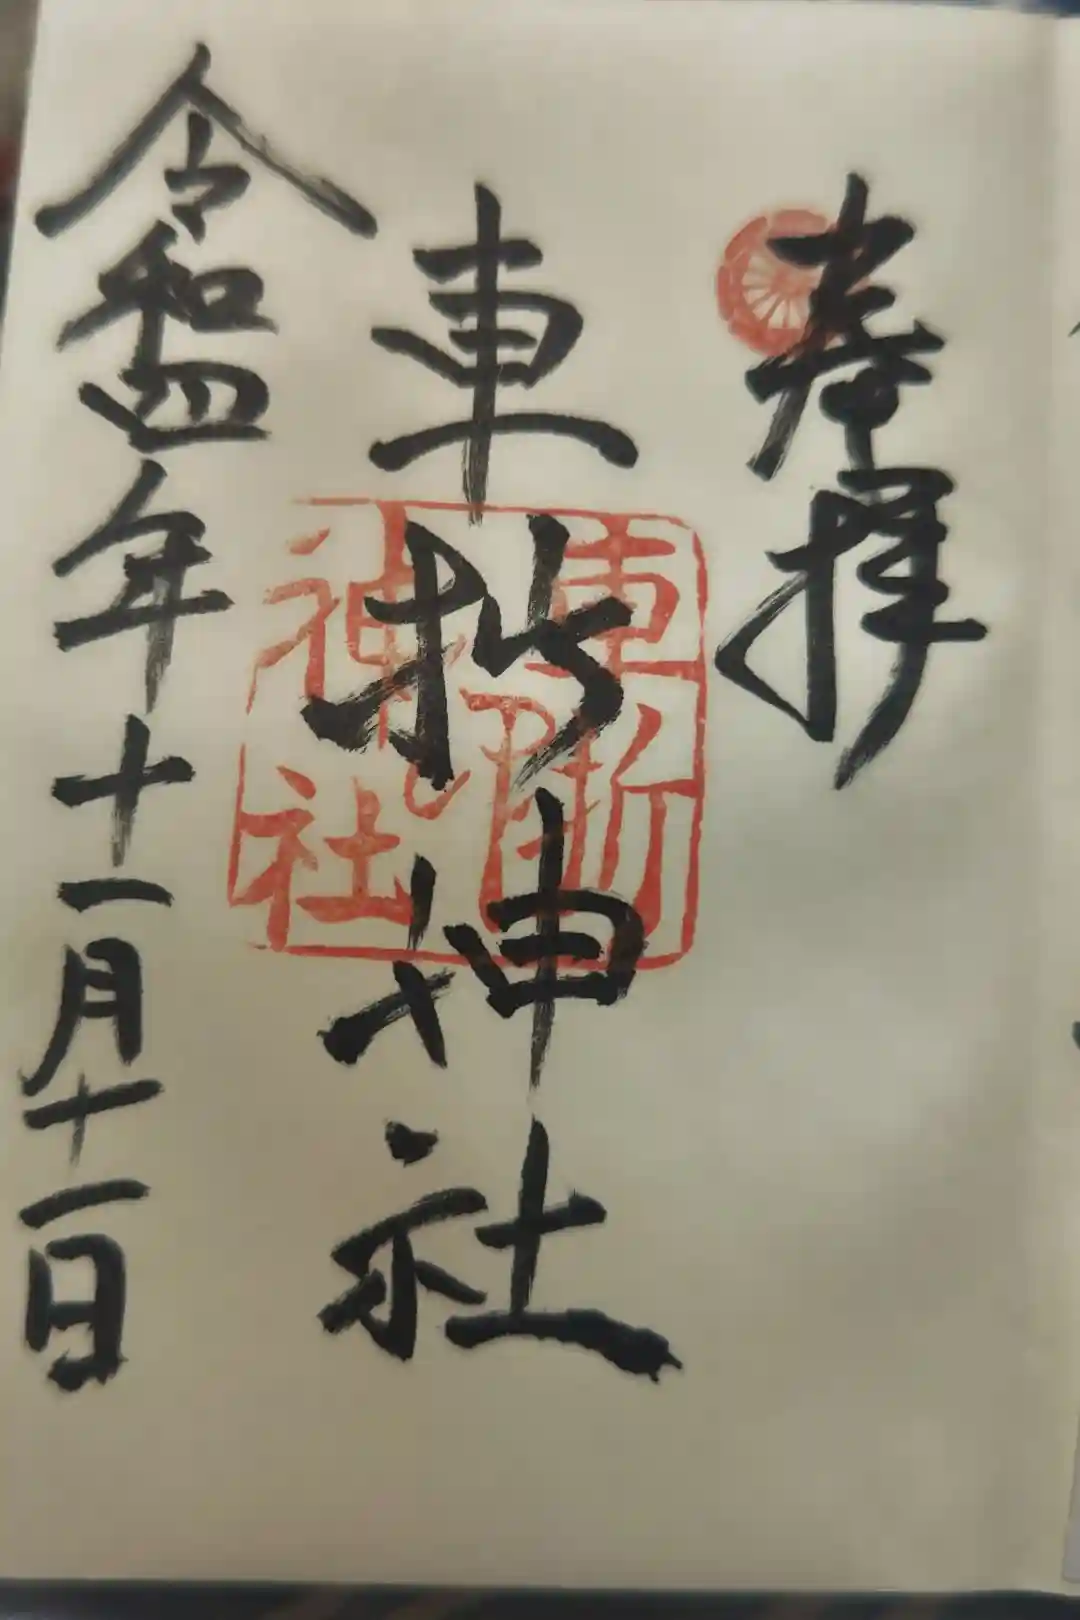 奉拝
車折神社
令和四年十一月十一日
車折神社